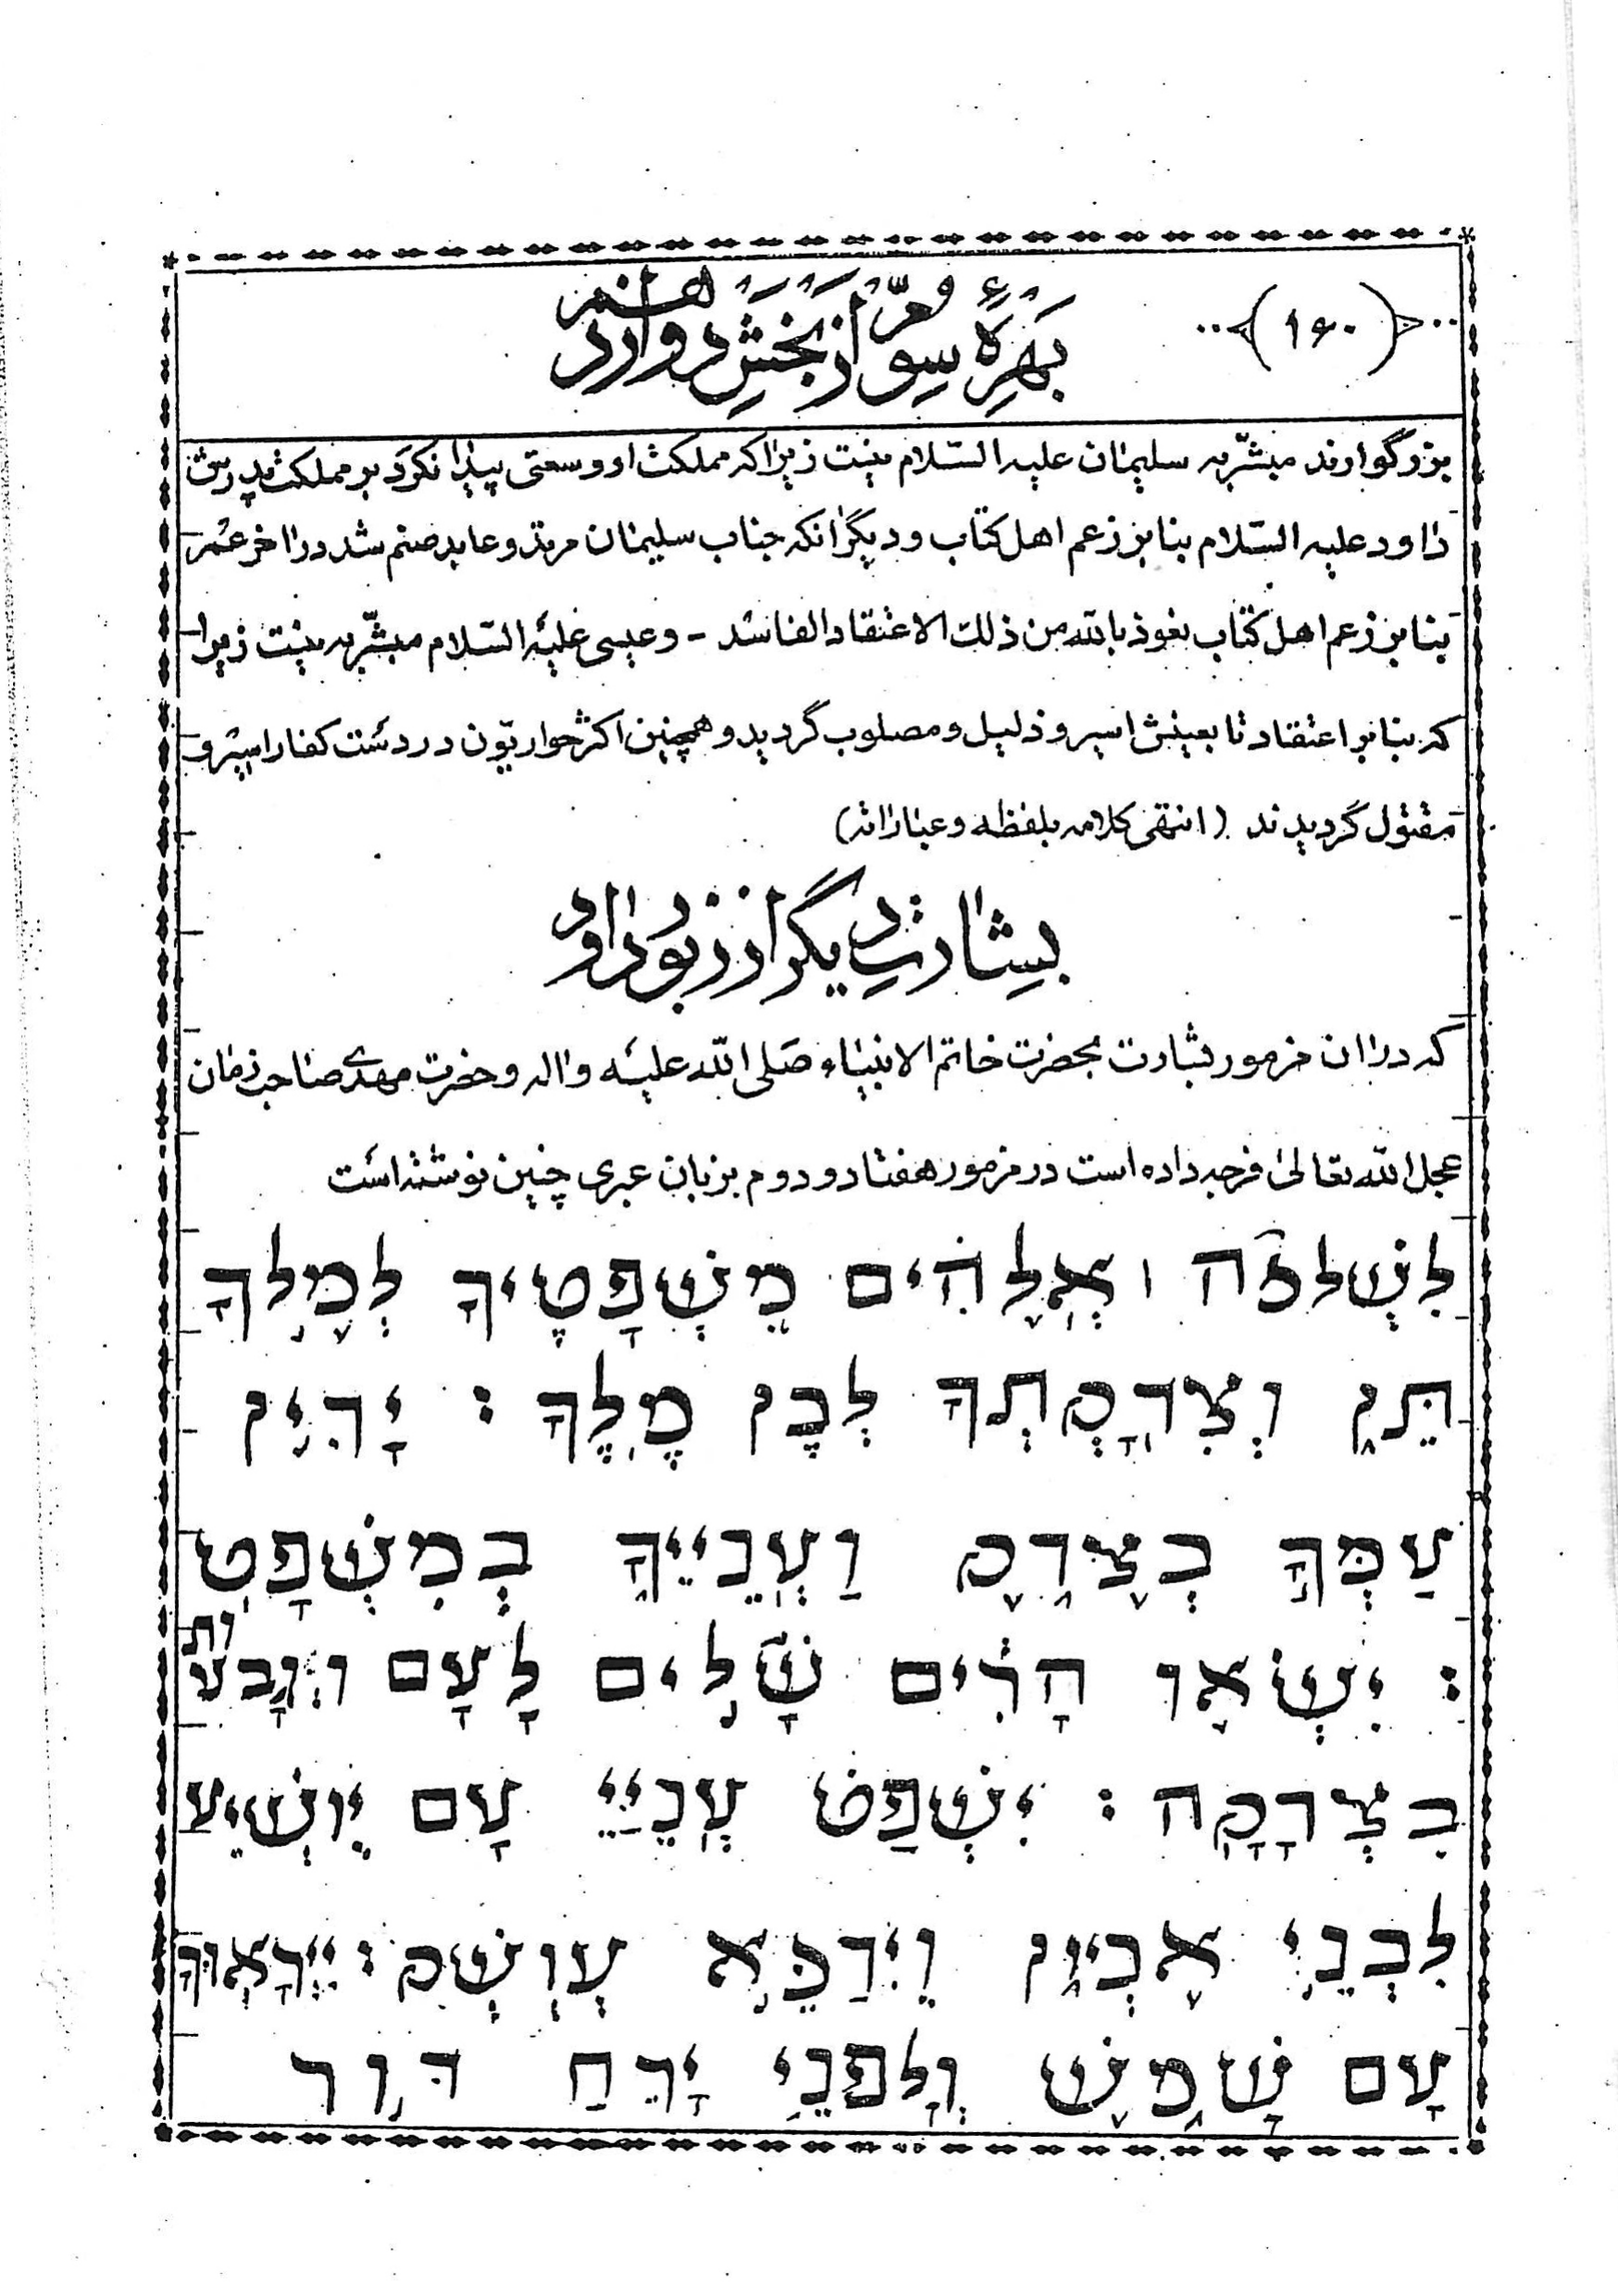 (۱۶۰)
بهرهٔ سوّم از بخش دوازدهم
بزرگوارند مبشّر به سلیمان علیه السّلام نیست زیرا که مملکت او وسعتی پیدا نکرد بر مملکت پدرش
داود علیه السّلام بنابر زعم اهل کتاب و دیگر انکه جناب سلیمان مرتد و عابد صنم شد در اخر عمر
بنابر زعم اهل کتاب نعوذ بالله من ذلک الاعتقاد الفاسد - و عیسی علیه السّلام مبشّر به نیست زیرا
که بنابر اعتقاد تابعینش اسیر و ذلیل و مصلوب گردید و همچنین اکثر حواریّون در دست کفار اسیر و
مقتول گردیدند (انتهی کلامه بلفظه و عباراته)
بشارت دیگر از زبور داود
که در ان مزمور بشارت بحضرت خاتم الانبیاء صلی الله علیه واله و حضرت مهدی صاحب زمان
عجل الله تعالی فرجه داده است در مزمور هفتاد و دوم بزبان عبری چنین نوشته است
לִשְׁלמֹה ו אֱלֹהִים מִשְׁפָּטֶיךָ לְמֶלֶךָ
תֵּן וְצִדְקָתְךָ לְבֶן מֶלֶךָ : יָדִין
עַמְּךָ בְצֶדֶק וַעֲנִיֶּיךָ בְמִשְׁפָּט
: יִשְׂאוּ הָרִים שָׁלים לָעָם וּגְבָעוֹת
בִּצְדָקָה : יִשְׁפֹּט עֲנִיֵּי עָם יוֹשִׁיעַ
לִבְנֵי אֶבְיוֹן וִידַכֵּא עוֹשֵׁק : יִירָאוּךָ
עָם שָׁמֶשׁ וְלִפְנֵי יָרֵחַ דּוֹר